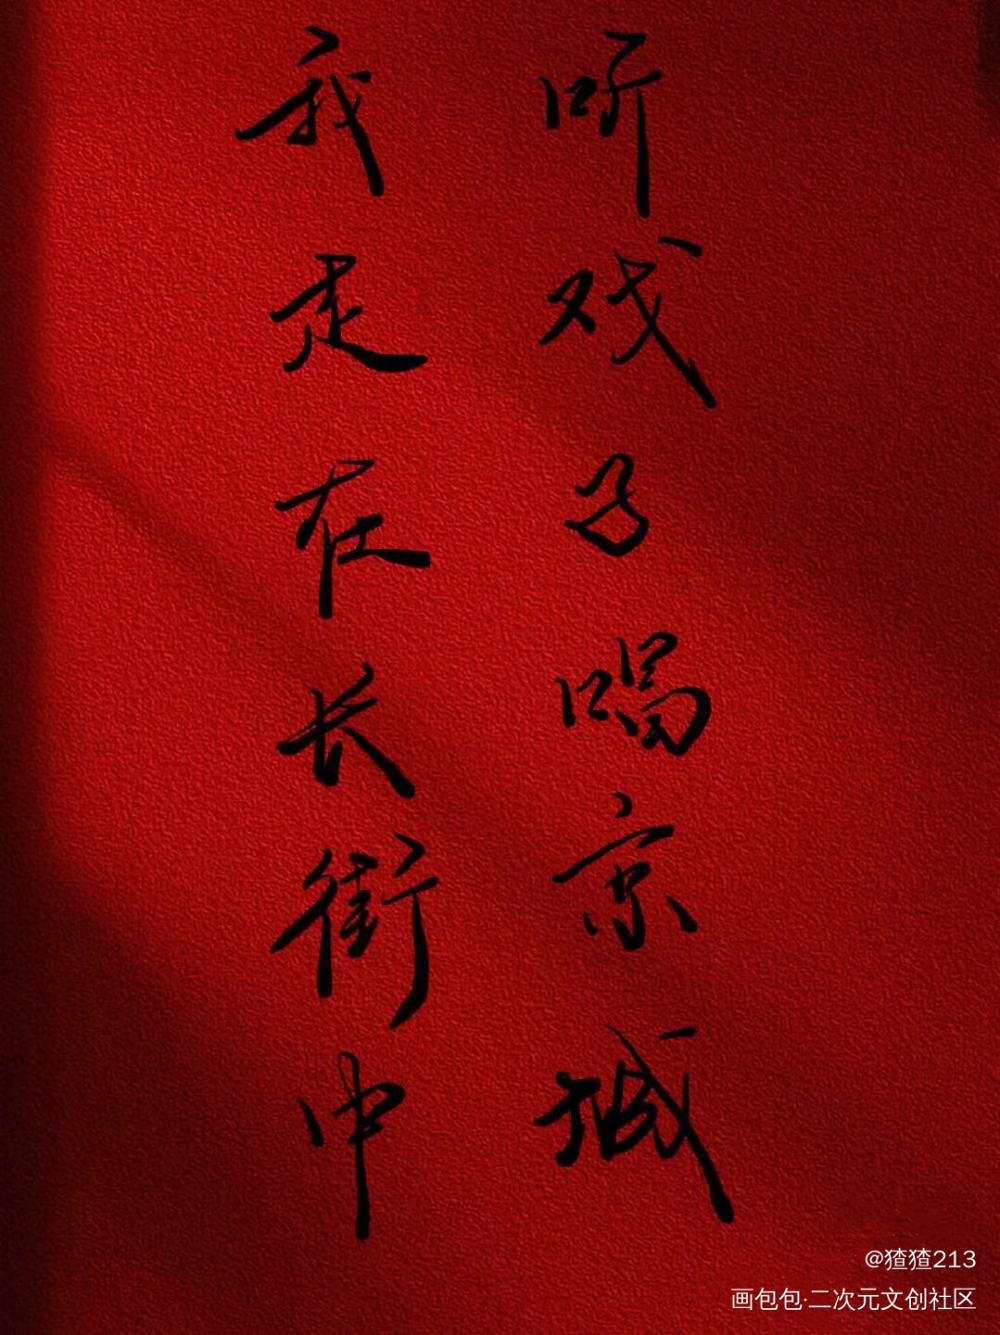 我走在长街中
听戏子唱京城
@猹猹213
画包包·二次元文创社区